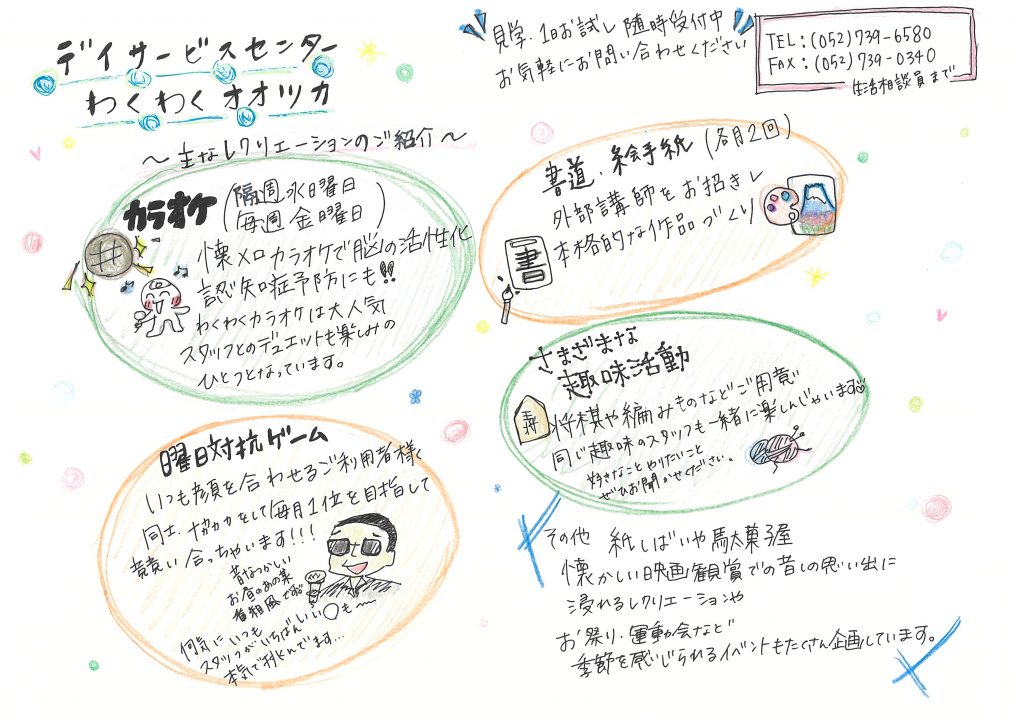 デイサービスセンター
わくわくオオツカ
見学・1日お試し随時受付中
お気軽にお問い合わせください
TEL:(052)739-6580
FAX:(052)739-0340
生活相談員まで
~主なレクリエーションのご紹介~
カラオケ(隔週水曜日
毎週金曜日)
懐メロカラオケで脳の活性化
認知症予防にも!!
わくわくカラオケは大人気
スタッフとのデュエットも楽しみの
ひとつとなっています。
書道・絵手紙(各月2回)
外部講師をお招きし
本格的な作品づくり
書
さまざまな
趣味活動
将棋や編みものなどご用意
同じ趣味のスタッフも一緒に楽しんじゃいます
好きなことやりたいこと
ぜひお聞かせください。
曜日対抗ゲーム
いつも顔を合わせるご利用者様
同士、協力をして毎月1位を目指して
競い合っちゃいます!!!
昔なつかしい
お昼のあの某
番組風で
いい○も~
何気にいつも
スタッフがいちばん
本気で挑んでます…
その他 紙しばいや駄菓子屋
懐かしい映画観賞での昔しの思い出に
浸れるレクリエーションや
お祭り、運動会など
季節を感じられるイベントもたくさん企画しています。